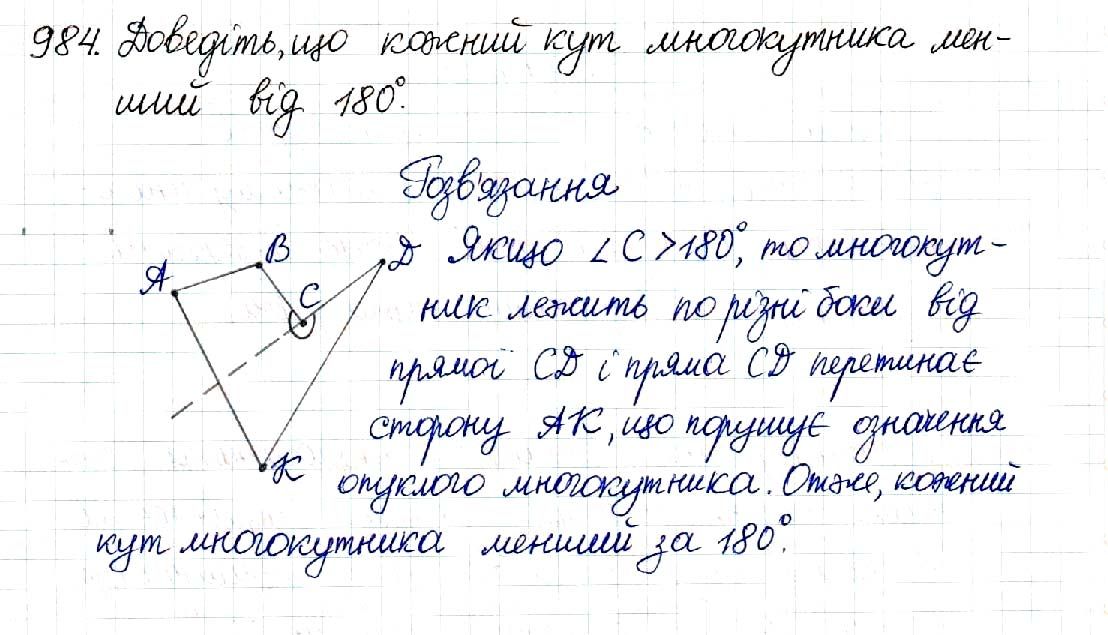 984. Доведіть, що кожний кут многокутника мен-
ший від 180°.
Розв'язання
A B C D K
Якщо ∠C>180°, то многокут-
ник лежить по різні боки від
прямої CD і пряма CD перетинає
сторону AK, що порушує означення
опуклого многокутника. Отже, кожний
кут многокутника менший за 180°.